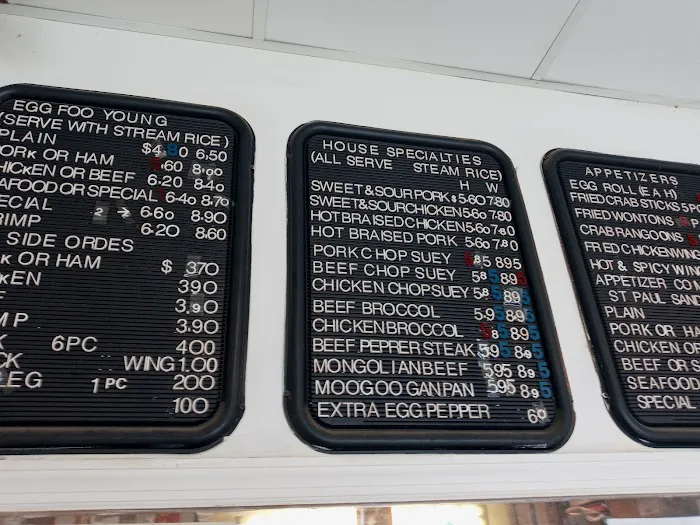 EGG FOO YOUNG
(SERVE WITH STREAM RICE)
PLAIN $4.80 6.50
PORK OR HAM 60 8.00
CHICKEN OR BEEF 6.20 8.40
SEAFOOD OR SPECIAL 6.40 8.70
ECIAL 2 → 6.60 8.90
RIMP 6.20 8.60
SIDE ORDES
K OR HAM $ 370
KEN 390
F 3.90
MP 3.90
K 6PC 400
CK WING 1.00
LEG 1PC 200
100
HOUSE SPECIALTIES
(ALL SERVE STEAM RICE)
H W
SWEET & SOUR PORK $5.60 7.80
SWEET & SOUR CHICKEN 5.60 7.80
HOT BRAISED CHICKEN 5.60 7.80
HOT BRAISED PORK 5.60 7.80
PORK CHOP SUEY 585 895
BEEF CHOP SUEY 585 895
CHICKEN CHOP SUEY 585 895
BEEF BROCCOL 5.95 895
CHICKEN BROCCOL 585 895
BEEF PEPPER STEAK 595 895
MONGOLIAN BEEF 595 895
MOO GOO GAN PAN 595 895
EXTRA EGG PEPPER 60
APPETIZERS
EGG ROLL (EAH)
FRIED CRAB STICKS 5PC
FRIED WONTONS P
CRAB RANGOONS
FRIED CHICKEN WING
HOT & SPICY WIN
APPETIZER CO
ST PAUL SAN
PLAIN
PORK OR HA
CHICKEN OF
BEEF OR S
SEAFOOD
SPECIAL